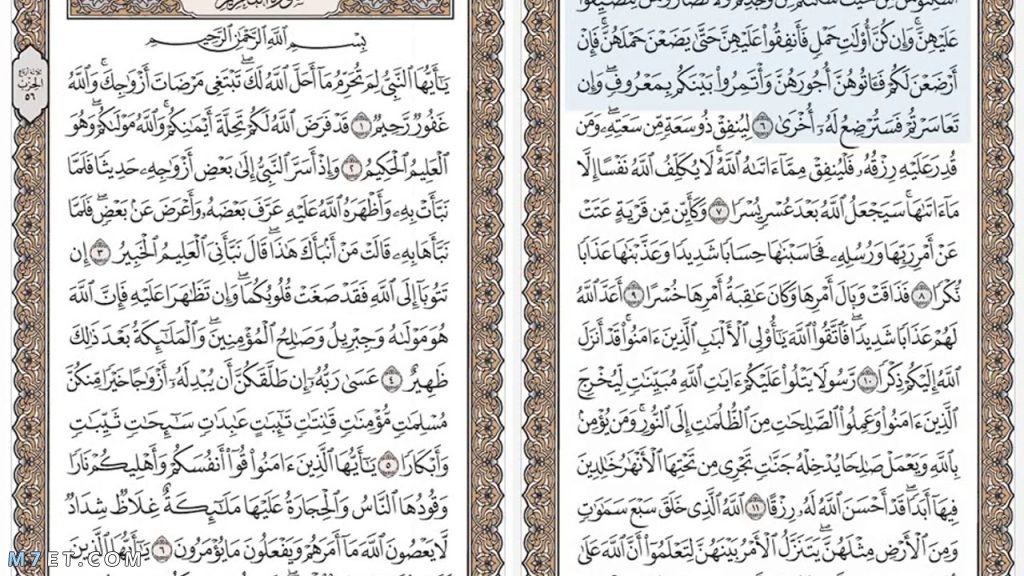 عَلَيْهِنَّ وَإِن كُنَّ أُوْلَٰتِ حَمْلٍ فَأَنفِقُوا۟ عَلَيْهِنَّ حَتَّىٰ يَضَعْنَ حَمْلَهُنَّ فَإِنْ
أَرْضَعْنَ لَكُمْ فَـَٔاتُوهُنَّ أُجُورَهُنَّ وَأْتَمِرُوا۟ بَيْنَكُم بِمَعْرُوفٍ وَإِن
تَعَاسَرْتُمْ فَسَتُرْضِعُ لَهُۥٓ أُخْرَىٰ ٦ لِيُنفِقْ ذُو سَعَةٍ مِّن سَعَتِهِۦ وَمَن
قُدِرَ عَلَيْهِ رِزْقُهُۥ فَلْيُنفِقْ مِمَّآ ءَاتَىٰهُ ٱللَّهُ لَا يُكَلِّفُ ٱللَّهُ نَفْسًا إِلَّا
مَآ ءَاتَىٰهَا سَيَجْعَلُ ٱللَّهُ بَعْدَ عُسْرٍ يُسْرًا ٧ وَكَأَيِّن مِّن قَرْيَةٍ عَتَتْ
عَنْ أَمْرِ رَبِّهَا وَرُسُلِهِۦ فَحَاسَبْنَٰهَا حِسَابًا شَدِيدًا وَعَذَّبْنَٰهَا عَذَابًا
نُّكْرًا ٨ فَذَاقَتْ وَبَالَ أَمْرِهَا وَكَانَ عَٰقِبَةُ أَمْرِهَا خُسْرًا ٩ أَعَدَّ ٱللَّهُ
لَهُمْ عَذَابًا شَدِيدًا فَٱتَّقُوا۟ ٱللَّهَ يَٰٓأُو۟لِى ٱلْأَلْبَٰبِ ٱلَّذِينَ ءَامَنُوا۟ قَدْ أَنزَلَ
ٱللَّهُ إِلَيْكُمْ ذِكْرًا ١٠ رَّسُولًا يَتْلُوا۟ عَلَيْكُمْ ءَايَٰتِ ٱللَّهِ مُبَيِّنَٰتٍ لِّيُخْرِجَ
ٱلَّذِينَ ءَامَنُوا۟ وَعَمِلُوا۟ ٱلصَّٰلِحَٰتِ مِنَ ٱلظُّلُمَٰتِ إِلَى ٱلنُّورِ وَمَن يُؤْمِنۢ
بِٱللَّهِ وَيَعْمَلْ صَٰلِحًا يُدْخِلْهُ جَنَّٰتٍ تَجْرِى مِن تَحْتِهَا ٱلْأَنْهَٰرُ خَٰلِدِينَ
فِيهَآ أَبَدًا قَدْ أَحْسَنَ ٱللَّهُ لَهُۥ رِزْقًا ١١ ٱللَّهُ ٱلَّذِى خَلَقَ سَبْعَ سَمَٰوَٰتٍ
وَمِنَ ٱلْأَرْضِ مِثْلَهُنَّ يَتَنَزَّلُ ٱلْأَمْرُ بَيْنَهُنَّ لِتَعْلَمُوٓا۟ أَنَّ ٱللَّهَ عَلَىٰ
سُورَةُ التَّحْرِيمِ
بِسْمِ ٱللَّهِ ٱلرَّحْمَٰنِ ٱلرَّحِيمِ
يَٰٓأَيُّهَا ٱلنَّبِىُّ لِمَ تُحَرِّمُ مَآ أَحَلَّ ٱللَّهُ لَكَ تَبْتَغِى مَرْضَاتَ أَزْوَٰجِكَ وَٱللَّهُ
غَفُورٌ رَّحِيمٌ ١ قَدْ فَرَضَ ٱللَّهُ لَكُمْ تَحِلَّةَ أَيْمَٰنِكُمْ وَٱللَّهُ مَوْلَىٰكُمْ وَهُوَ
ٱلْعَلِيمُ ٱلْحَكِيمُ ٢ وَإِذْ أَسَرَّ ٱلنَّبِىُّ إِلَىٰ بَعْضِ أَزْوَٰجِهِۦ حَدِيثًا فَلَمَّا
نَبَّأَتْ بِهِۦ وَأَظْهَرَهُ ٱللَّهُ عَلَيْهِ عَرَّفَ بَعْضَهُۥ وَأَعْرَضَ عَنۢ بَعْضٍ فَلَمَّا
نَبَّأَهَا بِهِۦ قَالَتْ مَنْ أَنۢبَأَكَ هَٰذَا قَالَ نَبَّأَنِىَ ٱلْعَلِيمُ ٱلْخَبِيرُ ٣ إِن
تَتُوبَآ إِلَى ٱللَّهِ فَقَدْ صَغَتْ قُلُوبُكُمَا وَإِن تَظَٰهَرَا عَلَيْهِ فَإِنَّ ٱللَّهَ
هُوَ مَوْلَىٰهُ وَجِبْرِيلُ وَصَٰلِحُ ٱلْمُؤْمِنِينَ وَٱلْمَلَٰٓئِكَةُ بَعْدَ ذَٰلِكَ
ظَهِيرٌ ٤ عَسَىٰ رَبُّهُۥٓ إِن طَلَّقَكُنَّ أَن يُبْدِلَهُۥٓ أَزْوَٰجًا خَيْرًا مِّنكُنَّ
مُسْلِمَٰتٍ مُّؤْمِنَٰتٍ قَٰنِتَٰتٍ تَٰٓئِبَٰتٍ عَٰبِدَٰتٍ سَٰٓئِحَٰتٍ ثَيِّبَٰتٍ
وَأَبْكَارًا ٥ يَٰٓأَيُّهَا ٱلَّذِينَ ءَامَنُوا۟ قُوٓا۟ أَنفُسَكُمْ وَأَهْلِيكُمْ نَارًا
وَقُودُهَا ٱلنَّاسُ وَٱلْحِجَارَةُ عَلَيْهَا مَلَٰٓئِكَةٌ غِلَاظٌ شِدَادٌ
لَّا يَعْصُونَ ٱللَّهَ مَآ أَمَرَهُمْ وَيَفْعَلُونَ مَا يُؤْمَرُونَ ٦ يَٰٓأَيُّهَا ٱلَّذِينَ
الحِزْب
٥٦
M7ET.COM